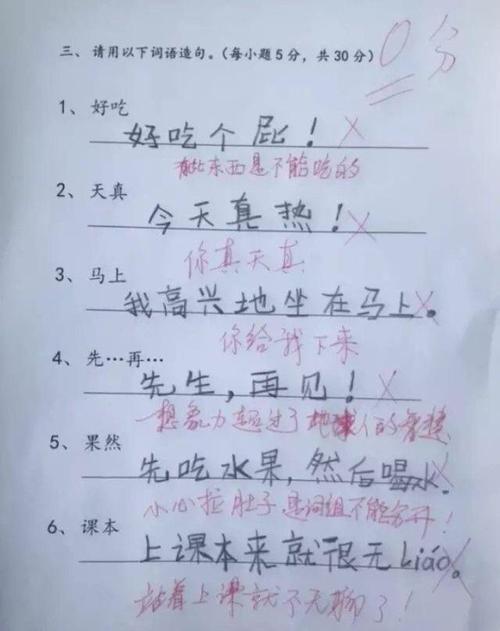 三、请用以下词语造句。（每小题5分，共30分）0分
1、好吃
好吃个屁！
有些东西是不能吃的
2、天真
今天真热！
你真天真
3、马上
我高兴地坐在马上。
你给我下来
4、先…再…
先生，再见！
想象力超过了地球人的
5、果然
先吃水果，然后喝水。
小心拉肚子 是词组不能分开！
6、课本
上课本来就很无Liáo。
站着上课就不无聊了！